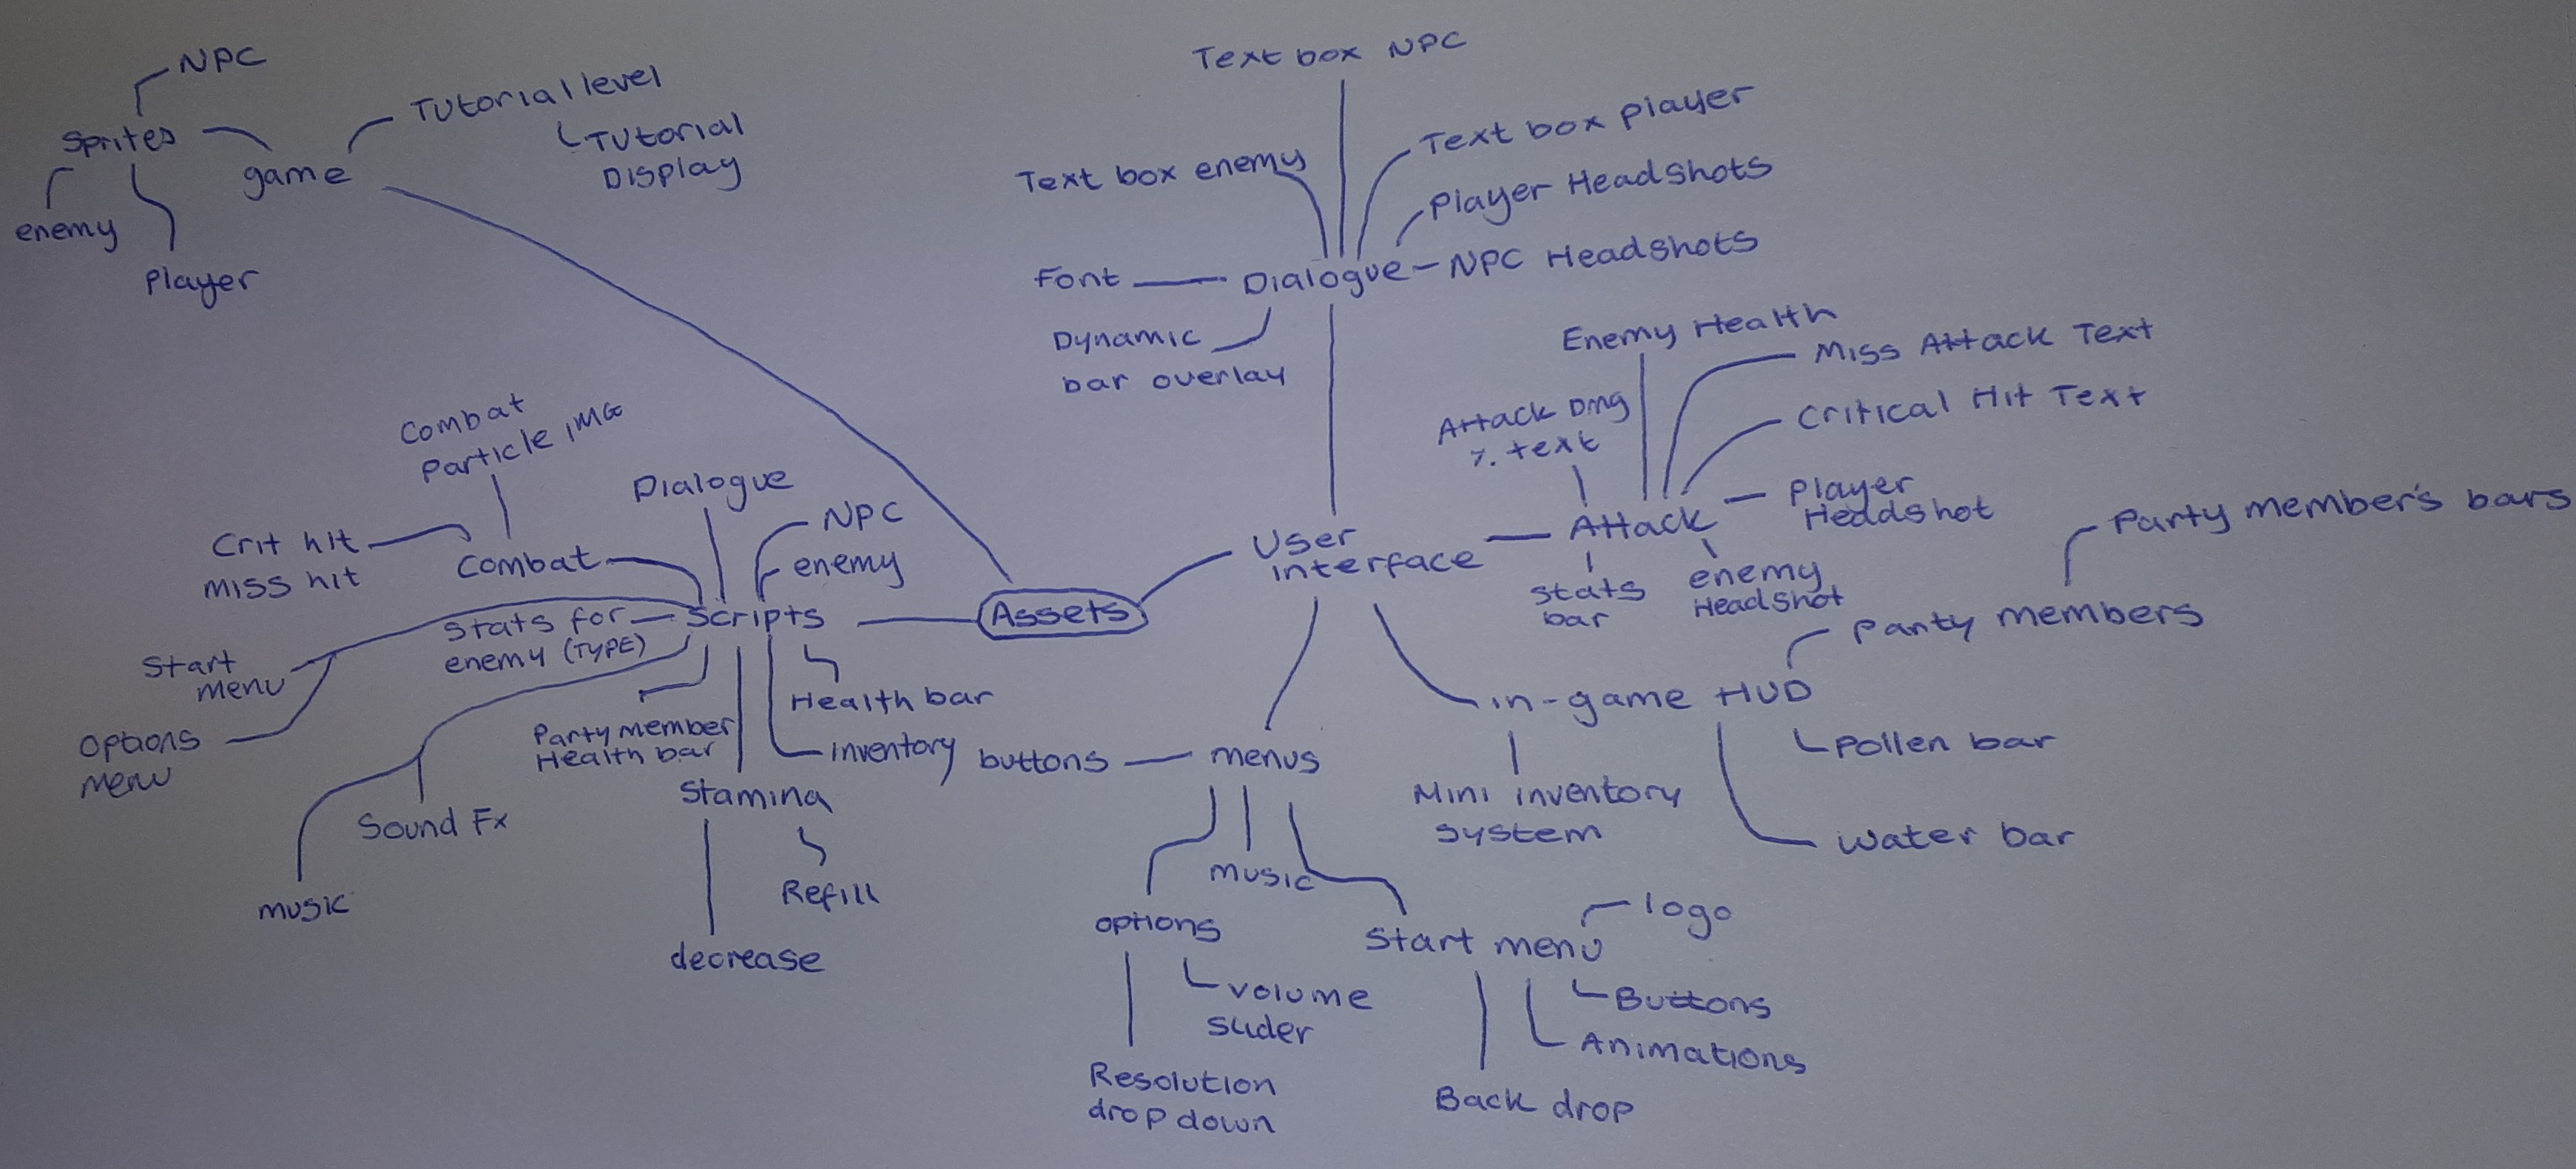 NPC
Sprites
enemy
Player
game
Tutorial level
Tutorial
Display
Text box NPC
Text box enemy
Text box player
Player Headshots
NPC Headshots
Font
Dialogue
Dynamic
bar overlay
Enemy Health
Miss Attack Text
Critical Hit Text
Attack Dmg
%. text
Attack
Player
Headshot
stats
bar
enemy
Headshot
User
interface
Assets
Party member's bars
Party members
in-game HUD
Pollen bar
Water bar
Mini inventory
system
Combat
Particle IMG
Crit hit
miss hit
Combat
Dialogue
NPC
enemy
Scripts
Stats for
enemy (TYPE)
Start
menu
Options
menu
Sound Fx
music
Party member
Health bar
Health bar
inventory
Stamina
Refill
decrease
buttons
menus
music
options
volume
slider
Resolution
drop down
Start menu
logo
Buttons
Animations
Back drop